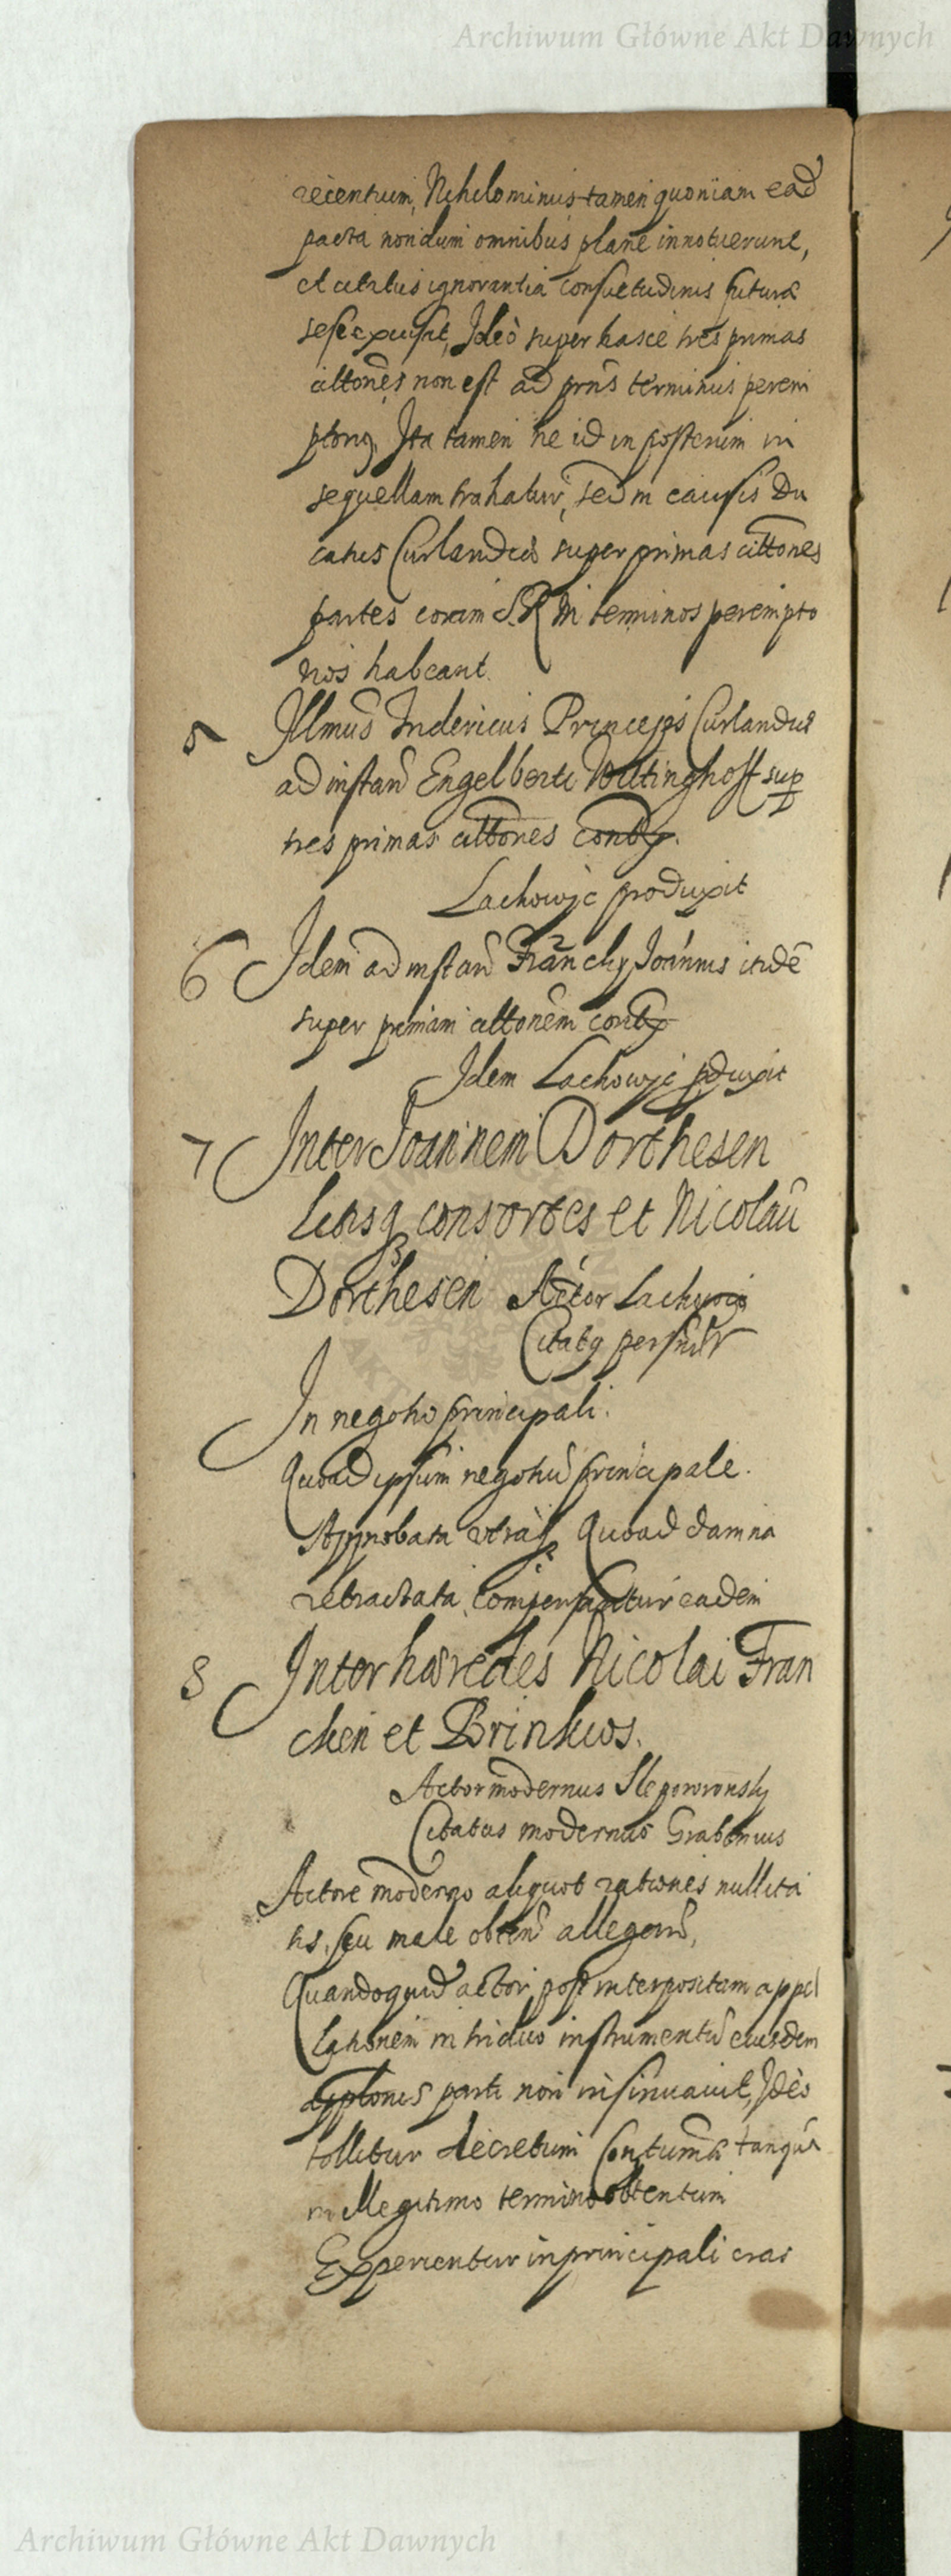 Archiwum Główne Akt Dawnych
recentium, Nihilominus tamen quoniam ead
pacta nondum omnibus plane innotuerunt,
et citatus ignorantia consuetudinis futura
sese excusat, Ideò super hasce tres primas
cittones non est ad prns terminus perem
ptorig. Ita tamen ne id in posterum in
sequellam trahatur, sed in causis Du
catus Curlandiæ super primas cittones
partes coram S. R. M. terminos perempto
rios habeant.
5 Illmus Fridericus Princeps Curlandiæ
ad instan Engelberti Vittinghoff sup
tres primas cittones contx.
Lachowic produxit
6 Idem ad instan Francky Joannis itidē
super primam cittonem contx
Idem Lachowic pduxit
7 Inter Joannem Dorthesen
Litisq consortes et Nicolaū
Dorthesen Actor Lachowic
Citatq personlr
In negotio principali.
Quoad ipsum negotiū principale.
Approbata utràsq Quoad damna
retractata, compensantur eadem
8 Inter hæredes Nicolai Fran
cken et Brinkios.
Actor modernus Sleporowonsky
Citatus modernus Grabonius
Actore moderno aliquot rationes nullita
tis seu male obten allegan,
Quandoquid actor post interpositam appel
lationem in triduo instrumentū eiusdem
applonis parti non insinuavit, Ideò
tollitur decretum Contuma tanquā
in illegitimo termino obtentum
Experientur in principali cras
Archiwum Główne Akt Dawnych